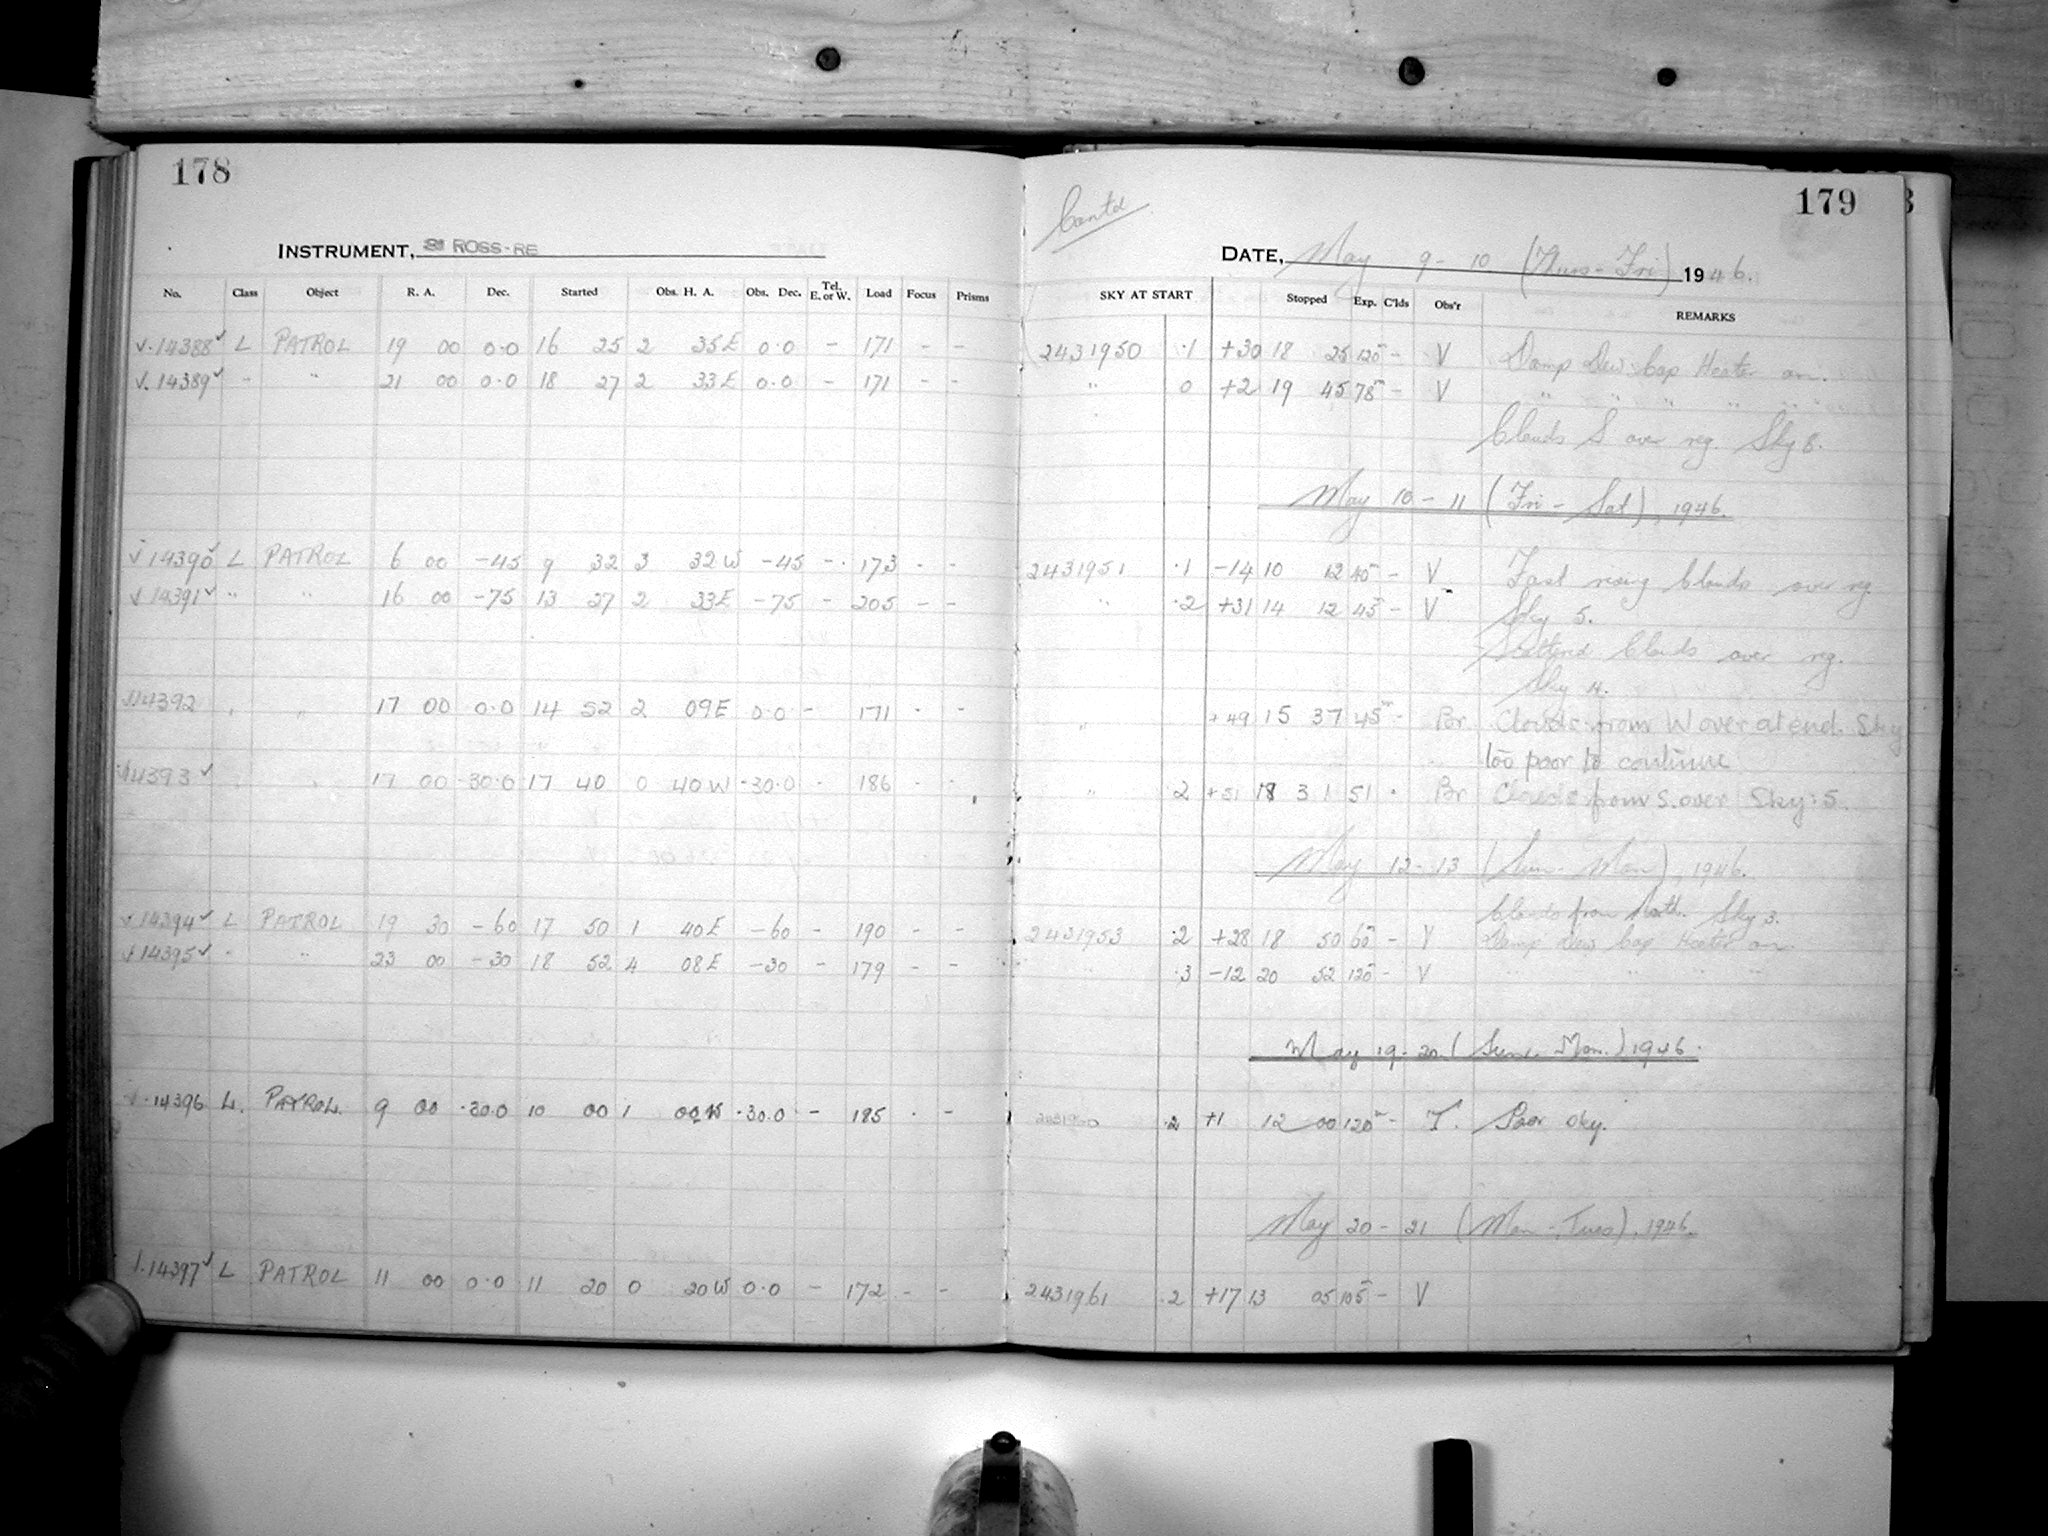 178
INSTRUMENT, ROSS-RE
No. Class Object R. A. Dec. Started Obs. H. A. Obs. Dec. Tel. E. or W. Load Focus Prisms
14388 L PATROL 19 00 0.0 16 25 2 35E 0.0 - 171 - -
14389 " " 21 00 0.0 18 27 2 33E 0.0 - 171 - -
14390 L PATROL 6 00 -45 9 32 3 32W -45 - 173 - -
14391 " " 16 00 -75 13 27 2 33E -75 - 205 - -
14392 " " 17 00 0.0 14 52 2 09E 0.0 - 171 - -
14393 " " 17 00 -30.0 17 40 0 40W -30.0 - 186 - -
14394 L PATROL 19 30 -60 17 50 1 40E -60 - 190 - -
14395 " " 23 00 -30 18 52 4 08E -30 - 179 - -
14396 L. PATROL. 9 00 -30.0 10 00 1 00W -30.0 - 185 - -
14397 L PATROL 11 00 0.0 11 20 0 20W 0.0 - 172 - -
Contd
179
DATE, May 9-10 (Thurs-Fri) 1946.
SKY AT START Stopped Exp. C'lds Obs'r REMARKS
2431950 .1 +30 18 25 120 - V Damp Dew Cap Heater on.
" 0 +2 19 45 78 - V " " " " "
Clouds S over reg. Sky 8.
May 10-11 (Fri-Sat), 1946.
2431951 .1 -14 10 12 40 - V Fast rising Clouds over reg.
" .2 +31 14 12 45 - V Sky 5.
Scattered Clouds over reg.
Sky 4.
" +49 15 37 45 - Br Clouds from W over at end. Sky
too poor to continue
" .2 +51 18 31 51 Br Clouds from S. over Sky: 5.
May 12-13 (Sun-Mon), 1946.
Clouds from North. Sky 3.
2431953 .2 +28 18 50 60 - V Damp Dew Cap Heater on
" .3 -12 20 52 120 - V " " " "
May 19-20 (Sun. Mon.) 1946.
.2 +1 12 00 120 - T. Poor sky.
May 20-21 (Mon-Tues), 1946.
2431961 .2 +17 13 05 105 - V